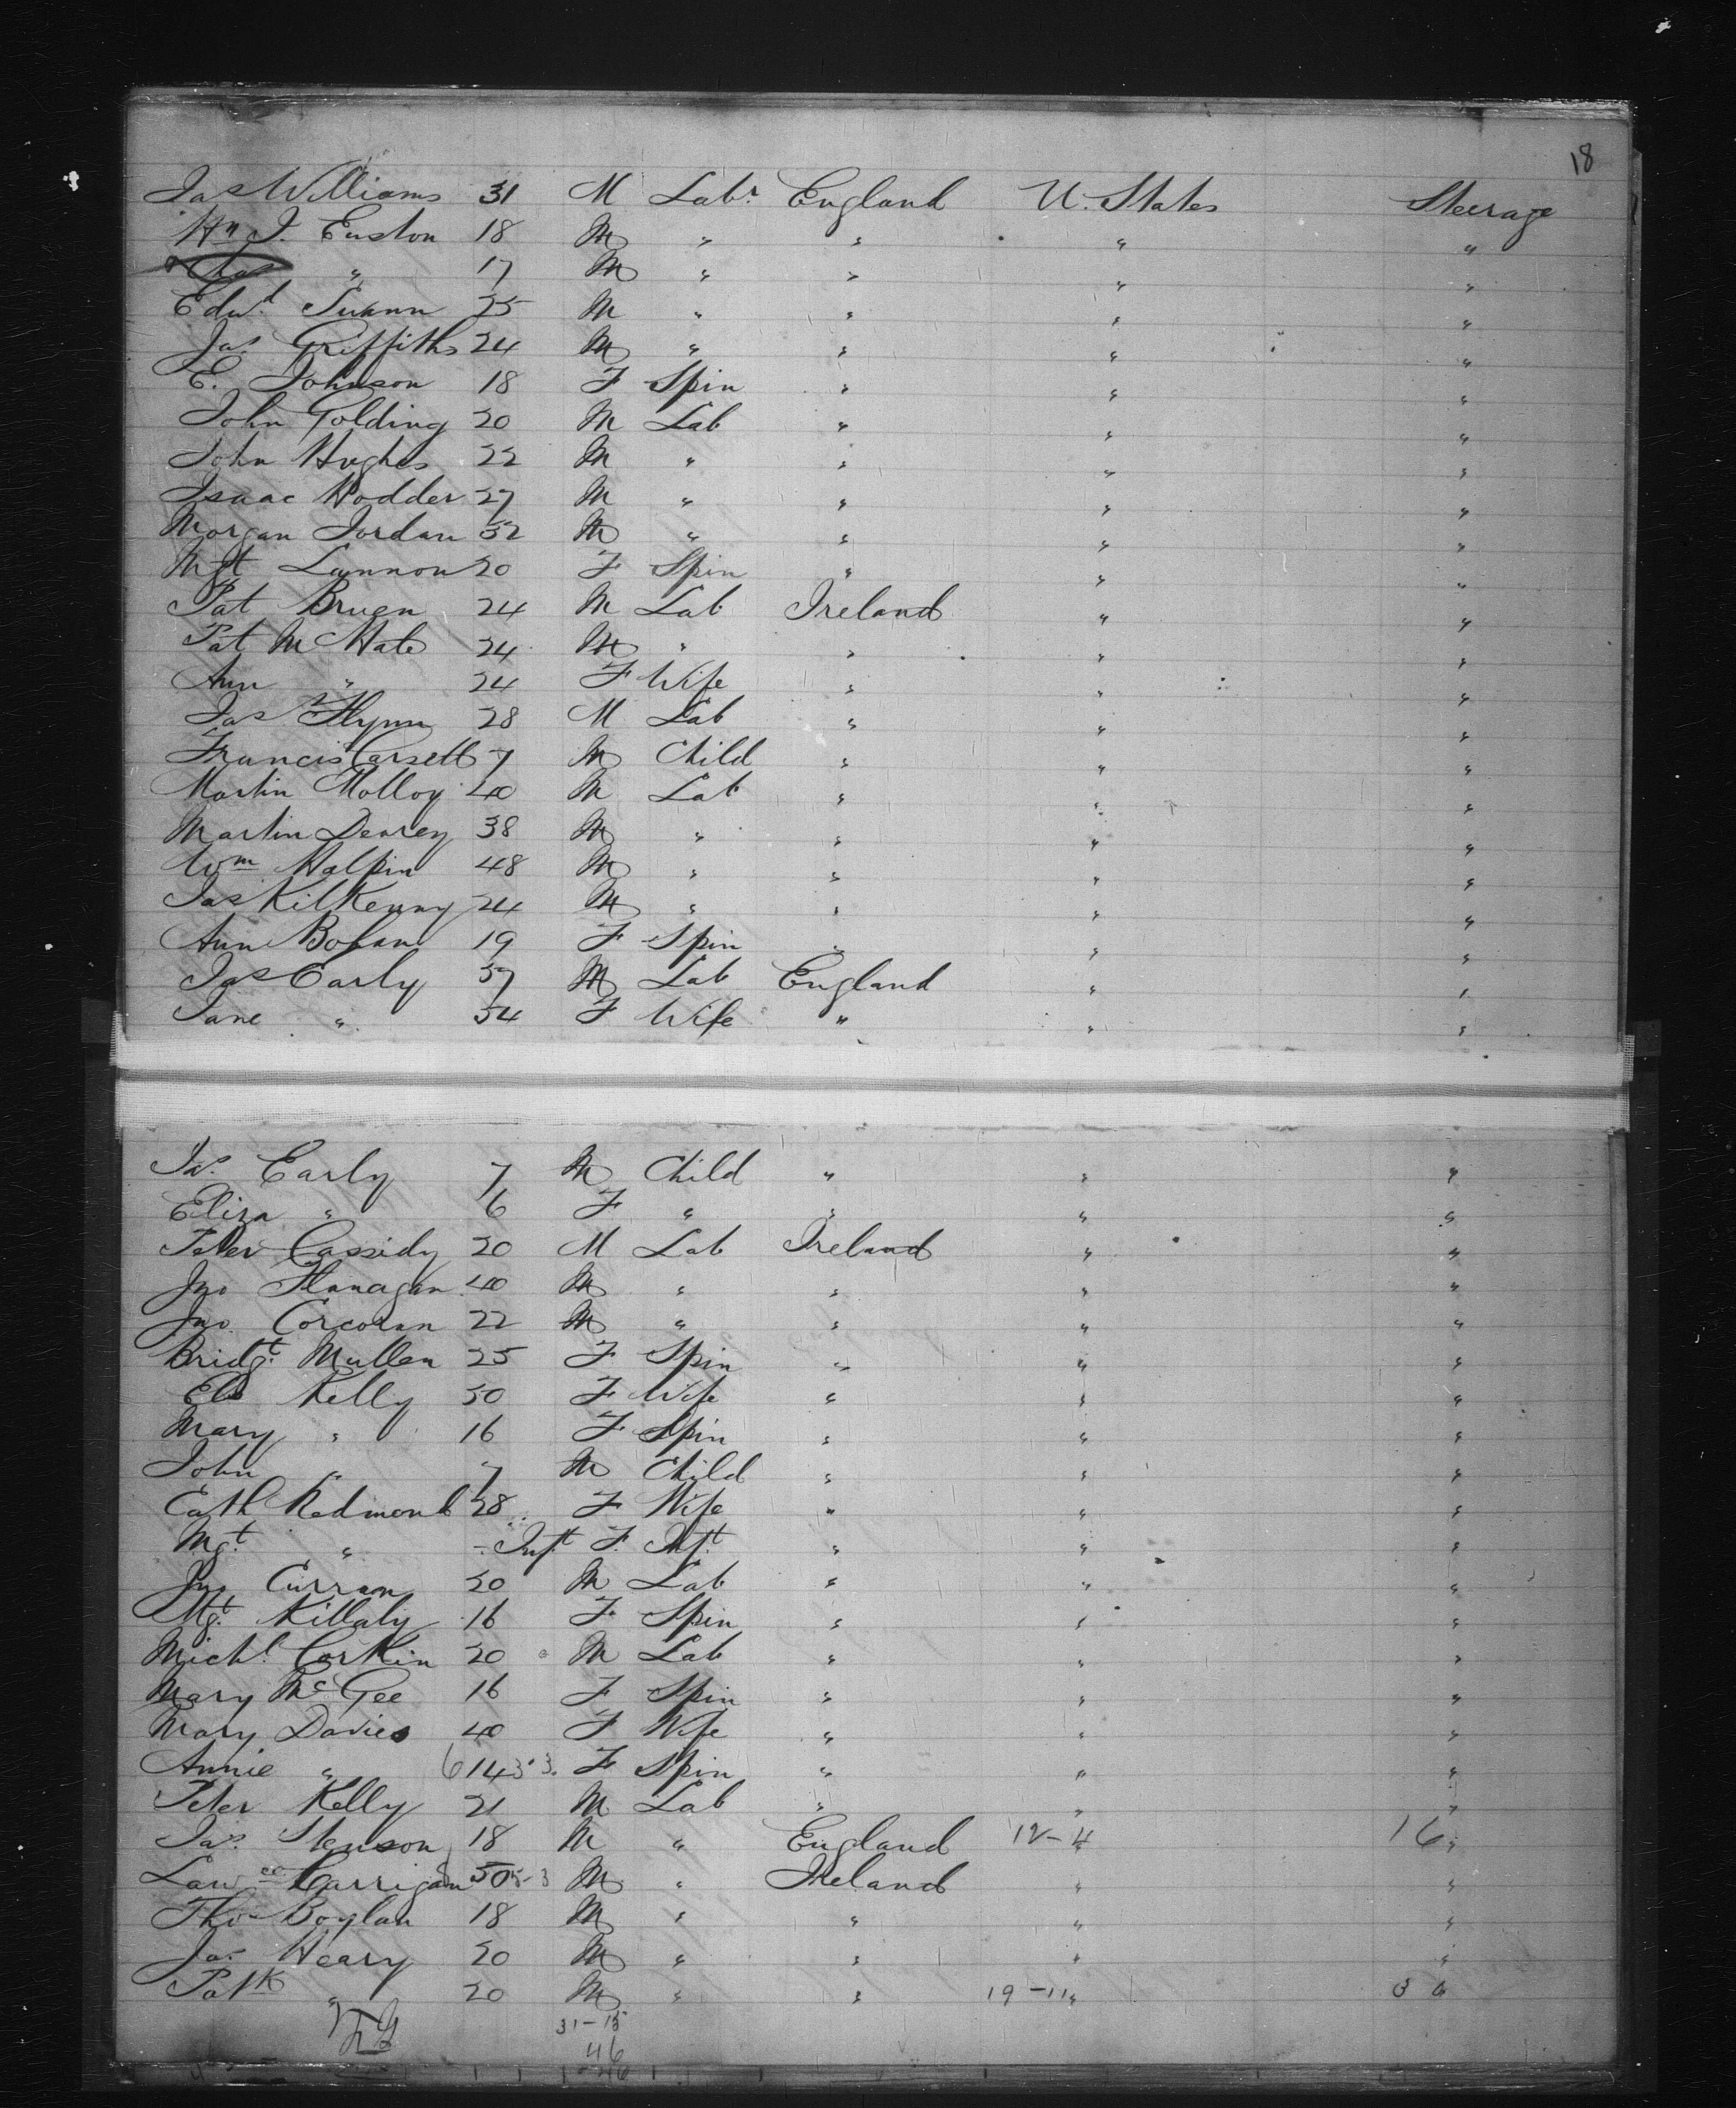 18
Jas Williams 31 M Labr England U. States Steerage
Hn J. Euston 18 M " " " "
Chas " 17 M " " " "
Edwd. Swann 25 M " " " "
Jas Griffiths 24 M " " " "
E. Johnson 18 F Spin " " "
John Golding 20 M Lab " " "
John Hughes 22 M " " " "
Isaac Hodder 27 M " " " "
Morgan Jordan 32 M " " " "
Mgt Lannon 20 F Spin " " "
Pat Bruen 24 M Lab Ireland " "
Pat McHale 24 M " " " "
Ann " 24 F Wife " " "
Jas Flynn 28 M Lab " " "
Francis 7 M Child " " "
Martin Molloy 40 M Lab " " "
Martin 38 M " " " "
Wm Halpin 48 M " " " "
Jas KilKenny 24 M " " " "
Ann Bohan 19 F Spin " " "
Jas Early 37 M Lab England " "
Jane " 34 F Wife " " "
Jas. Early 7 M Child " " "
Eliza " 6 F " " " "
Peter Cassidy 20 M Lab Ireland " "
Jno Flanagan 40 M " " " "
Jno. Corcoran 22 M " " " "
Bridgt. Mullen 25 F Spin " " "
Kelly 50 F Wife " " "
Mary " 16 F Spin " " "
John " 7 M Child " " "
Cath Redmond 28 F Wife " " "
Mgt. " Inft F. Inft " " "
Jno Curran 20 M Lab " " "
Mgt. Killaly 16 F Spin " " "
Michl. Corkin 20 M Lab " " "
Mary McGee 16 F Spin " " "
Mary Davies 40 F Wife " " "
Annie " 14 F Spin " " "
Peter Kelly 21 M Lab " " "
Jas. Stenson 18 M " England 12-4 " 16 "
Lawce Carrigan 50 M " Ireland " "
Thos Boylan 18 M " " " "
Jas. Heary 20 M " " " "
Patk " 20 M " " 19-11 "
31-15
46